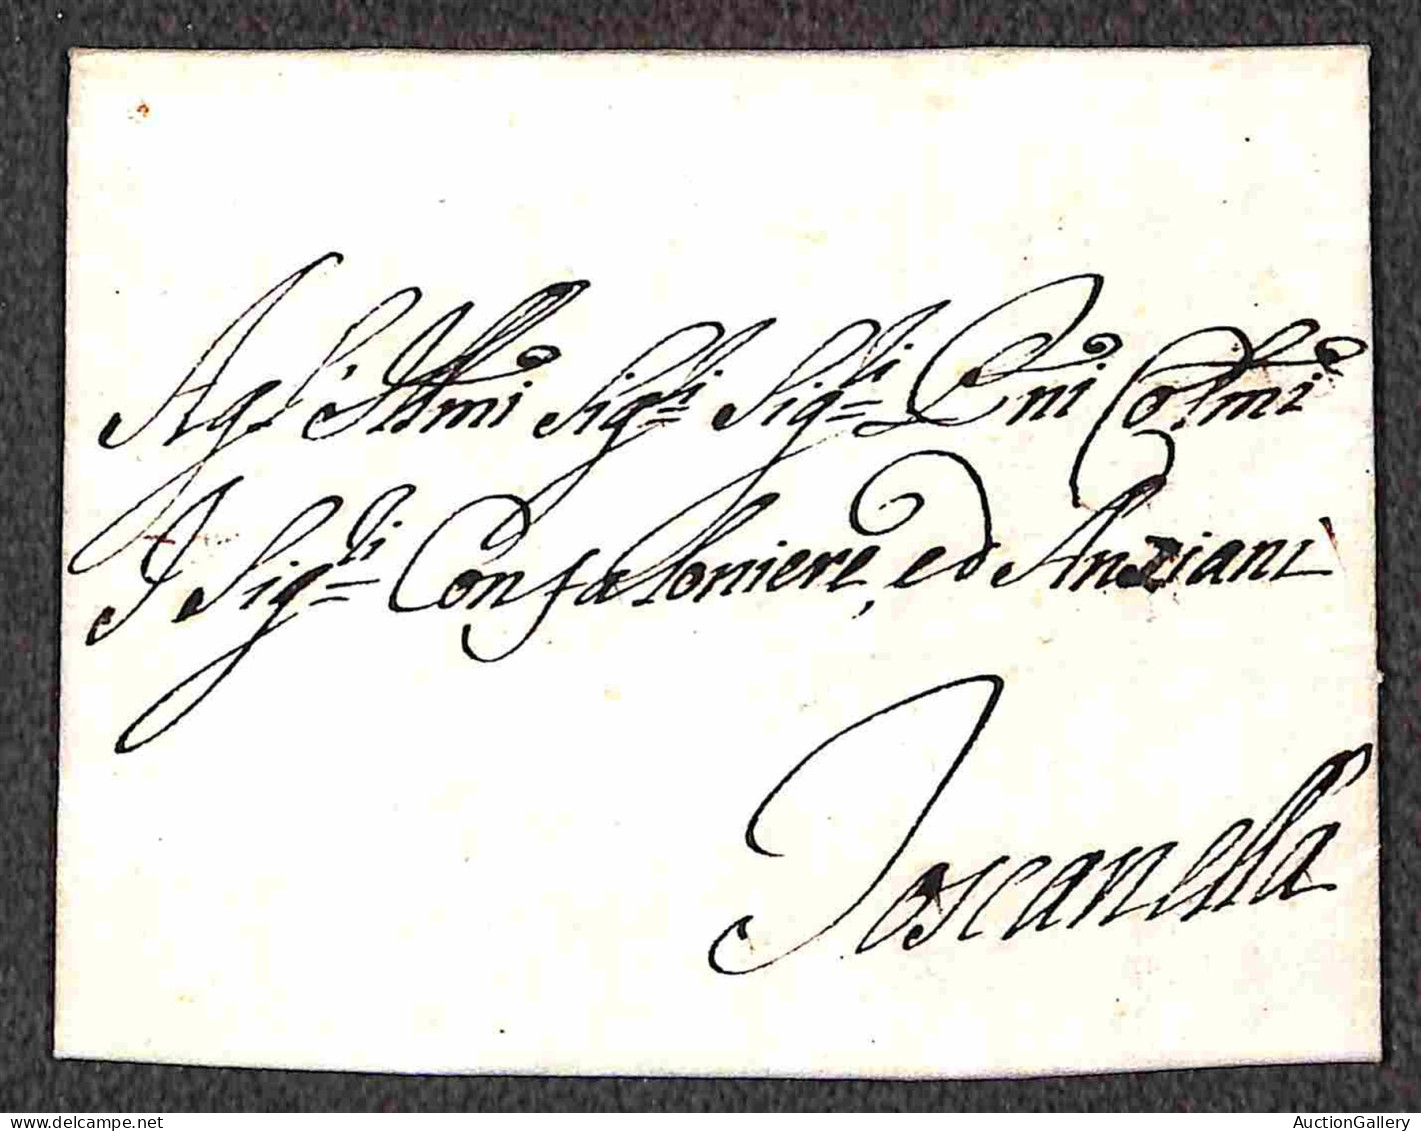 Agl' Ill:mi Sig:ri Sig:ri P[ad]ni Col:mi
I Sig:ri Confaloniere, ed Anziani
Toscanella
delcampe.net
AuctionGallery